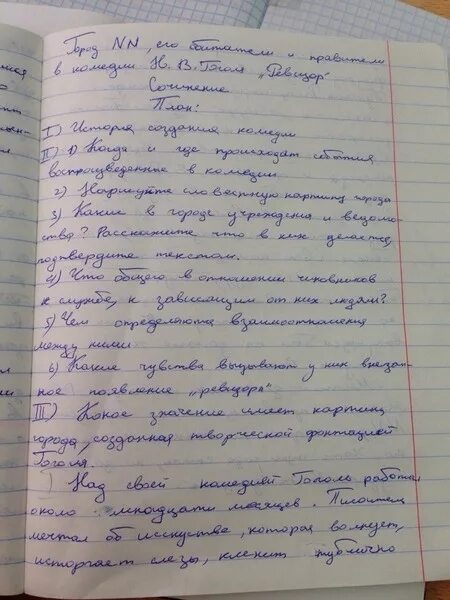 Город NN, его обитатели и правители
в комедии Н. В. Гоголя „Ревизор"
Сочинение
План:
I) История создания комедии
II) 1) Когда и где происходят события
воспроизведенные в комедии
2) Нарисуйте словестную картину города
3) Какие в городе учреждения и ведомо-
ства? Расскажите что в них делается,
подтвердите текстом.
4) Что общего в отношении чиновников
к службе, к зависящим от них людям?
5) Чем определяются взаимоотношения
между ними
6) Какие чувства вызывают у них внезап-
ное появление „ревизора"
III) Какое значение имеет картина
города, созданная творческой фонтацией
Гоголя.
Над своей комедией Гоголь работал
около месяцев. Писатель
мечтал об исскустве, которая волнует,
исторгает слезы, клеймит публично